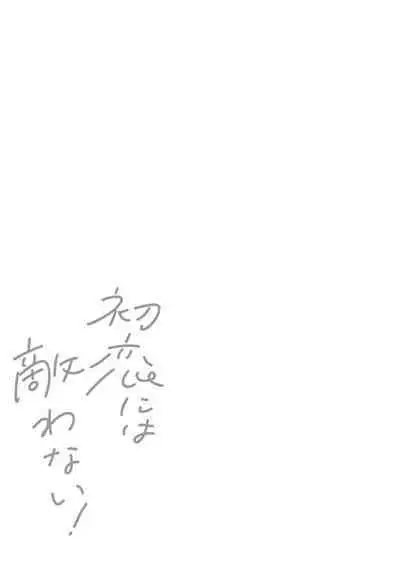 初恋には
敵わない!